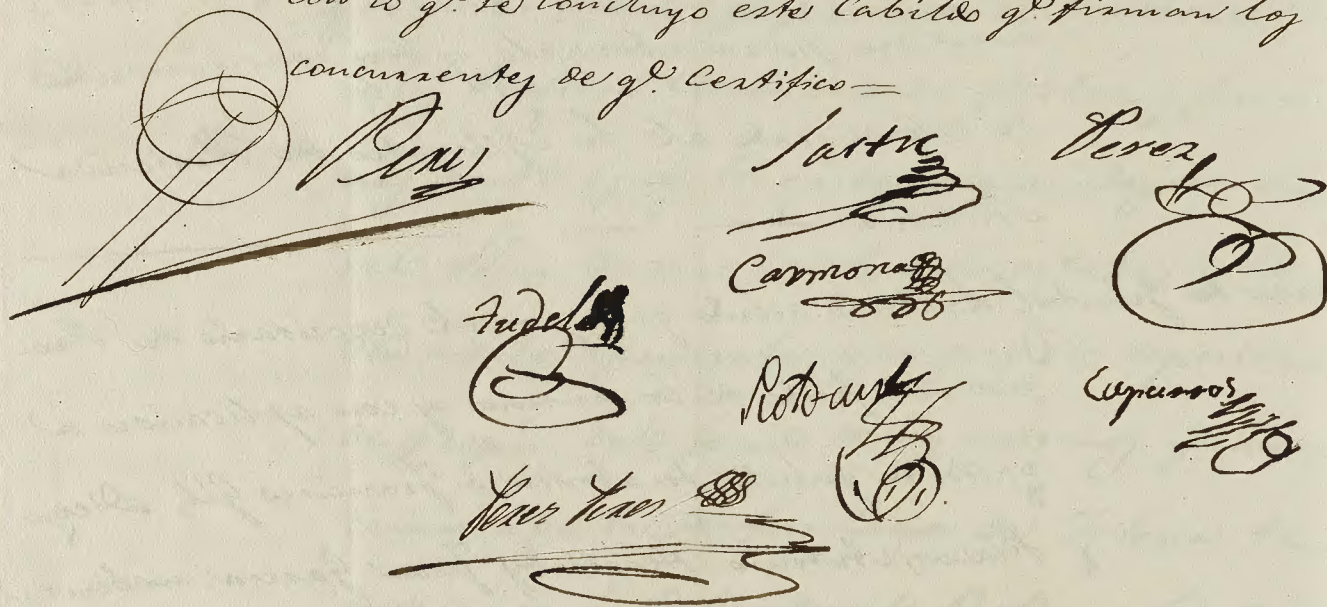 con lo q.e se concluyo este Cabildo q.e firman los
concurrentes de q.e Certifico =
Perez
Sastre
Perez
Carmona
Tudela
Caparros
Perez